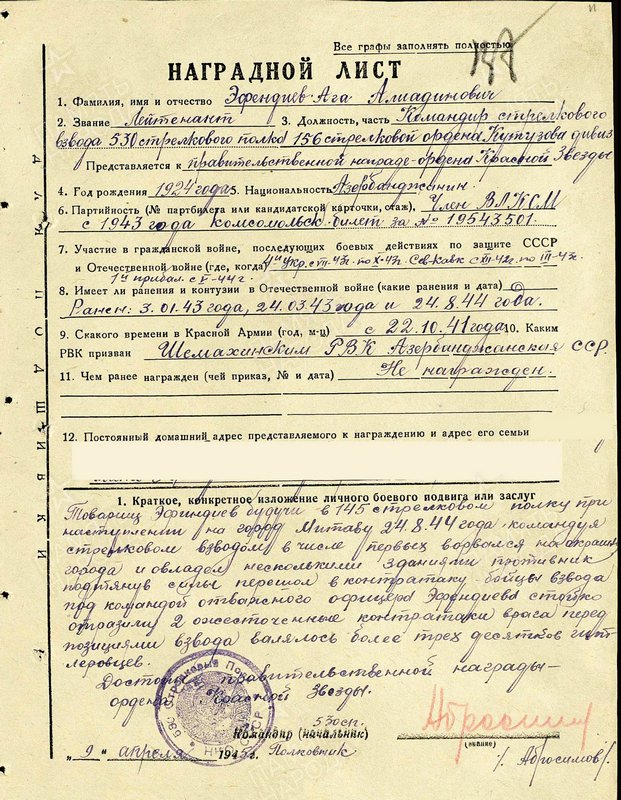 Все графы заполнять полностью
НАГРАДНОЙ ЛИСТ
1. Фамилия, имя и отчество Эфендиев Ага Алиадинович
2. Звание Лейтенант 3. Должность, часть Командир стрелкового
взвода 530 стрелкового полка 156 стрелковой ордена Кутузова дивиз
Представляется к правительственной награде-ордена Красной Звезды
4. Год рождения 1924 года 5. Национальность Азербанджанин.
6. Партийность (№ партбилета или кандидатской карточки, стаж), Член ВЛКСМ
с 1943 года комсомольск. билет за № 19543501.
7. Участие в гражданской войне, последующих боевых действиях по защите СССР
и Отечественной войне (где, когда) 4й Укр. с VII-43г. по X-43г. Сев-Кавк с XII-42г. по III-43г.
1й прибал. с V-44г.
8. Имеет ли ранения и контузии в Отечественной войне (какие ранения и дата)
Ранен: 3.01.43 года, 24.03.43 года и 24.8.44 года.
9. Скакого времени в Красной Армии (год, м-ц) с 22.10.41 года 10. Каким
РВК призван Шемахинским РВК Азербанджанская ССР.
11. Чем ранее награжден (чей приказ, № и дата) Не награжден.
12. Постоянный домашний адрес представляемого к награждению и адрес его семьи
1. Краткое, конкретное изложение личного боевого подвига или заслуг
Товарищ Эфиндиев будучи в 145 стрелковом полку при
наступлении на город Митаву 24.8.44 года командуя
стрелковом взводом в числе первых ворвался на окраин
города и овладел несколкими зданиями противник
подтянув силы перешол в контратаку. бойцы взвода
под командой отважного офицера Эфендиева стойко
отразили 2 ожесточенные контратаки врага перед
позициями взвода валялось более трех десятков гит
леровцев.
Достоин правительственной награды-
ордена Красной Звезды.
530 Стрелковый По
НКО СССР
530 сп.
Командир (начальник)
Полковник
Абросим
(звание)
/Абросимов/.
"9" апреля 1945 г.
ДЛЯ ПОДШИВКИ